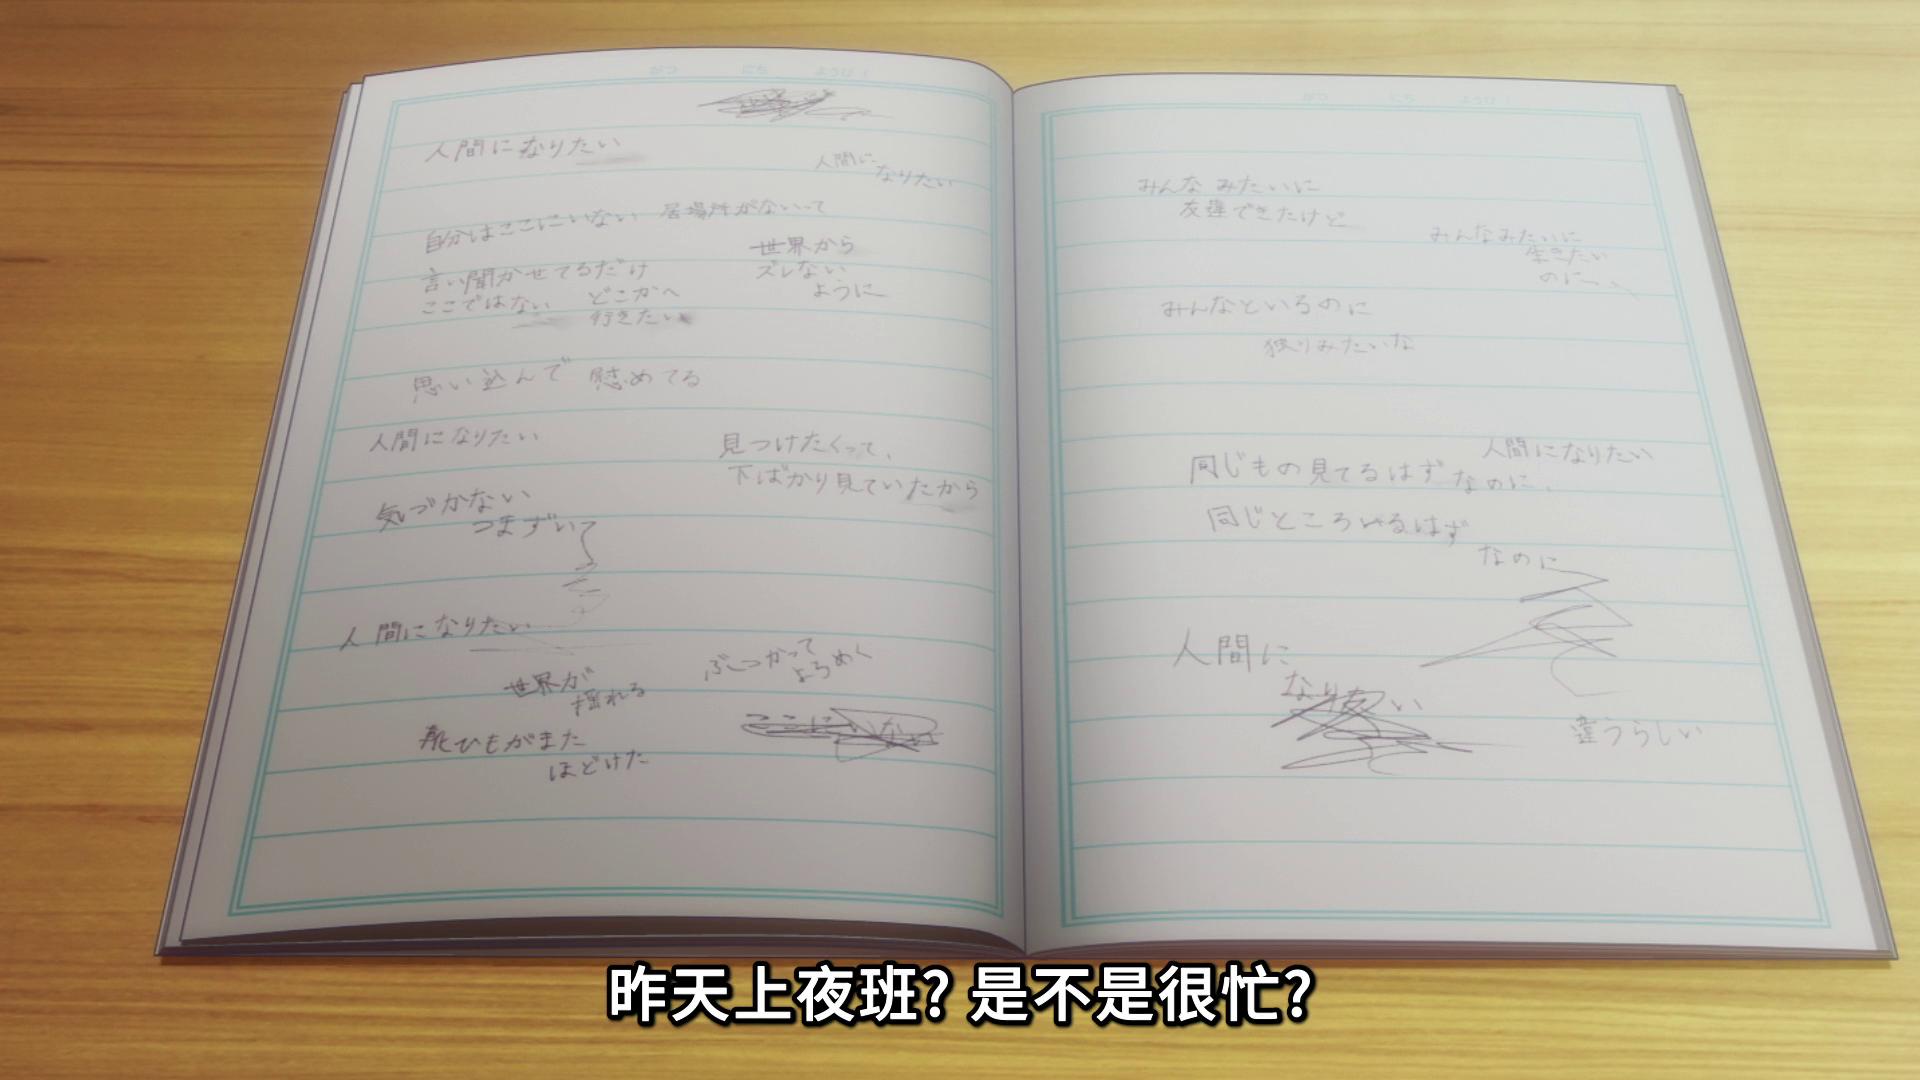 がつ にち ようび
人間になりたい
人間に
なりたい
自分はここにいない 居場所がないって
世界から
ズレない
ように
言い聞かせてるだけ
ここではない どこかへ
行きたい
思い込んで 慰めてる
人間になりたい
見つけたくって、
下ばかり見ていたから
気づかない
つまずいて
人間になりたい
世界が
揺れる
ぶつかって
よろめく
ここにいない
靴ひもがまた
ほどけた
がつ にち ようび
みんな みたいに
友達できたけど
みんなみたいに
生きたい
のに、
みんなといるのに
独りみたいな
人間になりたい
同じもの見てるはず なのに、
同じところいるはず
なのに
人間に
なりたい
違うらしい
昨天上夜班? 是不是很忙?